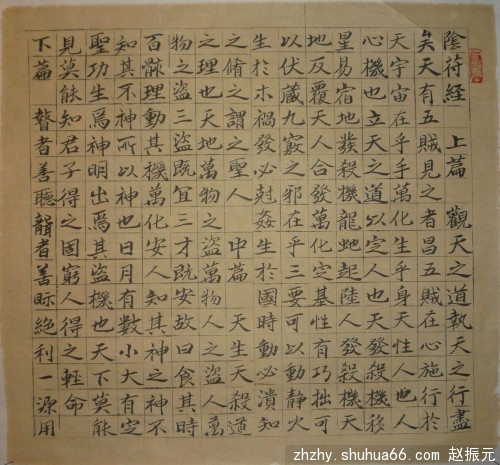 陰符經 上篇 觀天之道執天之行盡
矣天有五賊見之者昌五賊在心施行於
天宇宙在乎手萬化生乎身天性人也人
心機也立天之道以定人也天發殺機移
星易宿地發殺機龍虵起陸人發殺機天
地反覆天人合發萬化定基性有巧拙可
以伏藏九竅之邪在乎三要可以動靜火
生於木禍發必尅姦生於國時動必潰知
之脩之謂之聖人 中篇 天生天殺道
之理也天地萬物之盜萬物人之盜人萬
物之盜三盜既宜三才既安故曰食其時
百骸理動其機萬化安人知其神之神不
知其不神所以神也日月有數小大有定
聖功生焉神明出焉其盜機也天下莫能
見莫能知君子得之固窮人得之輕命
下篇 瞽者善聽聾者善眎絕利一源用
zhzhy.shuhua66.com 赵振元